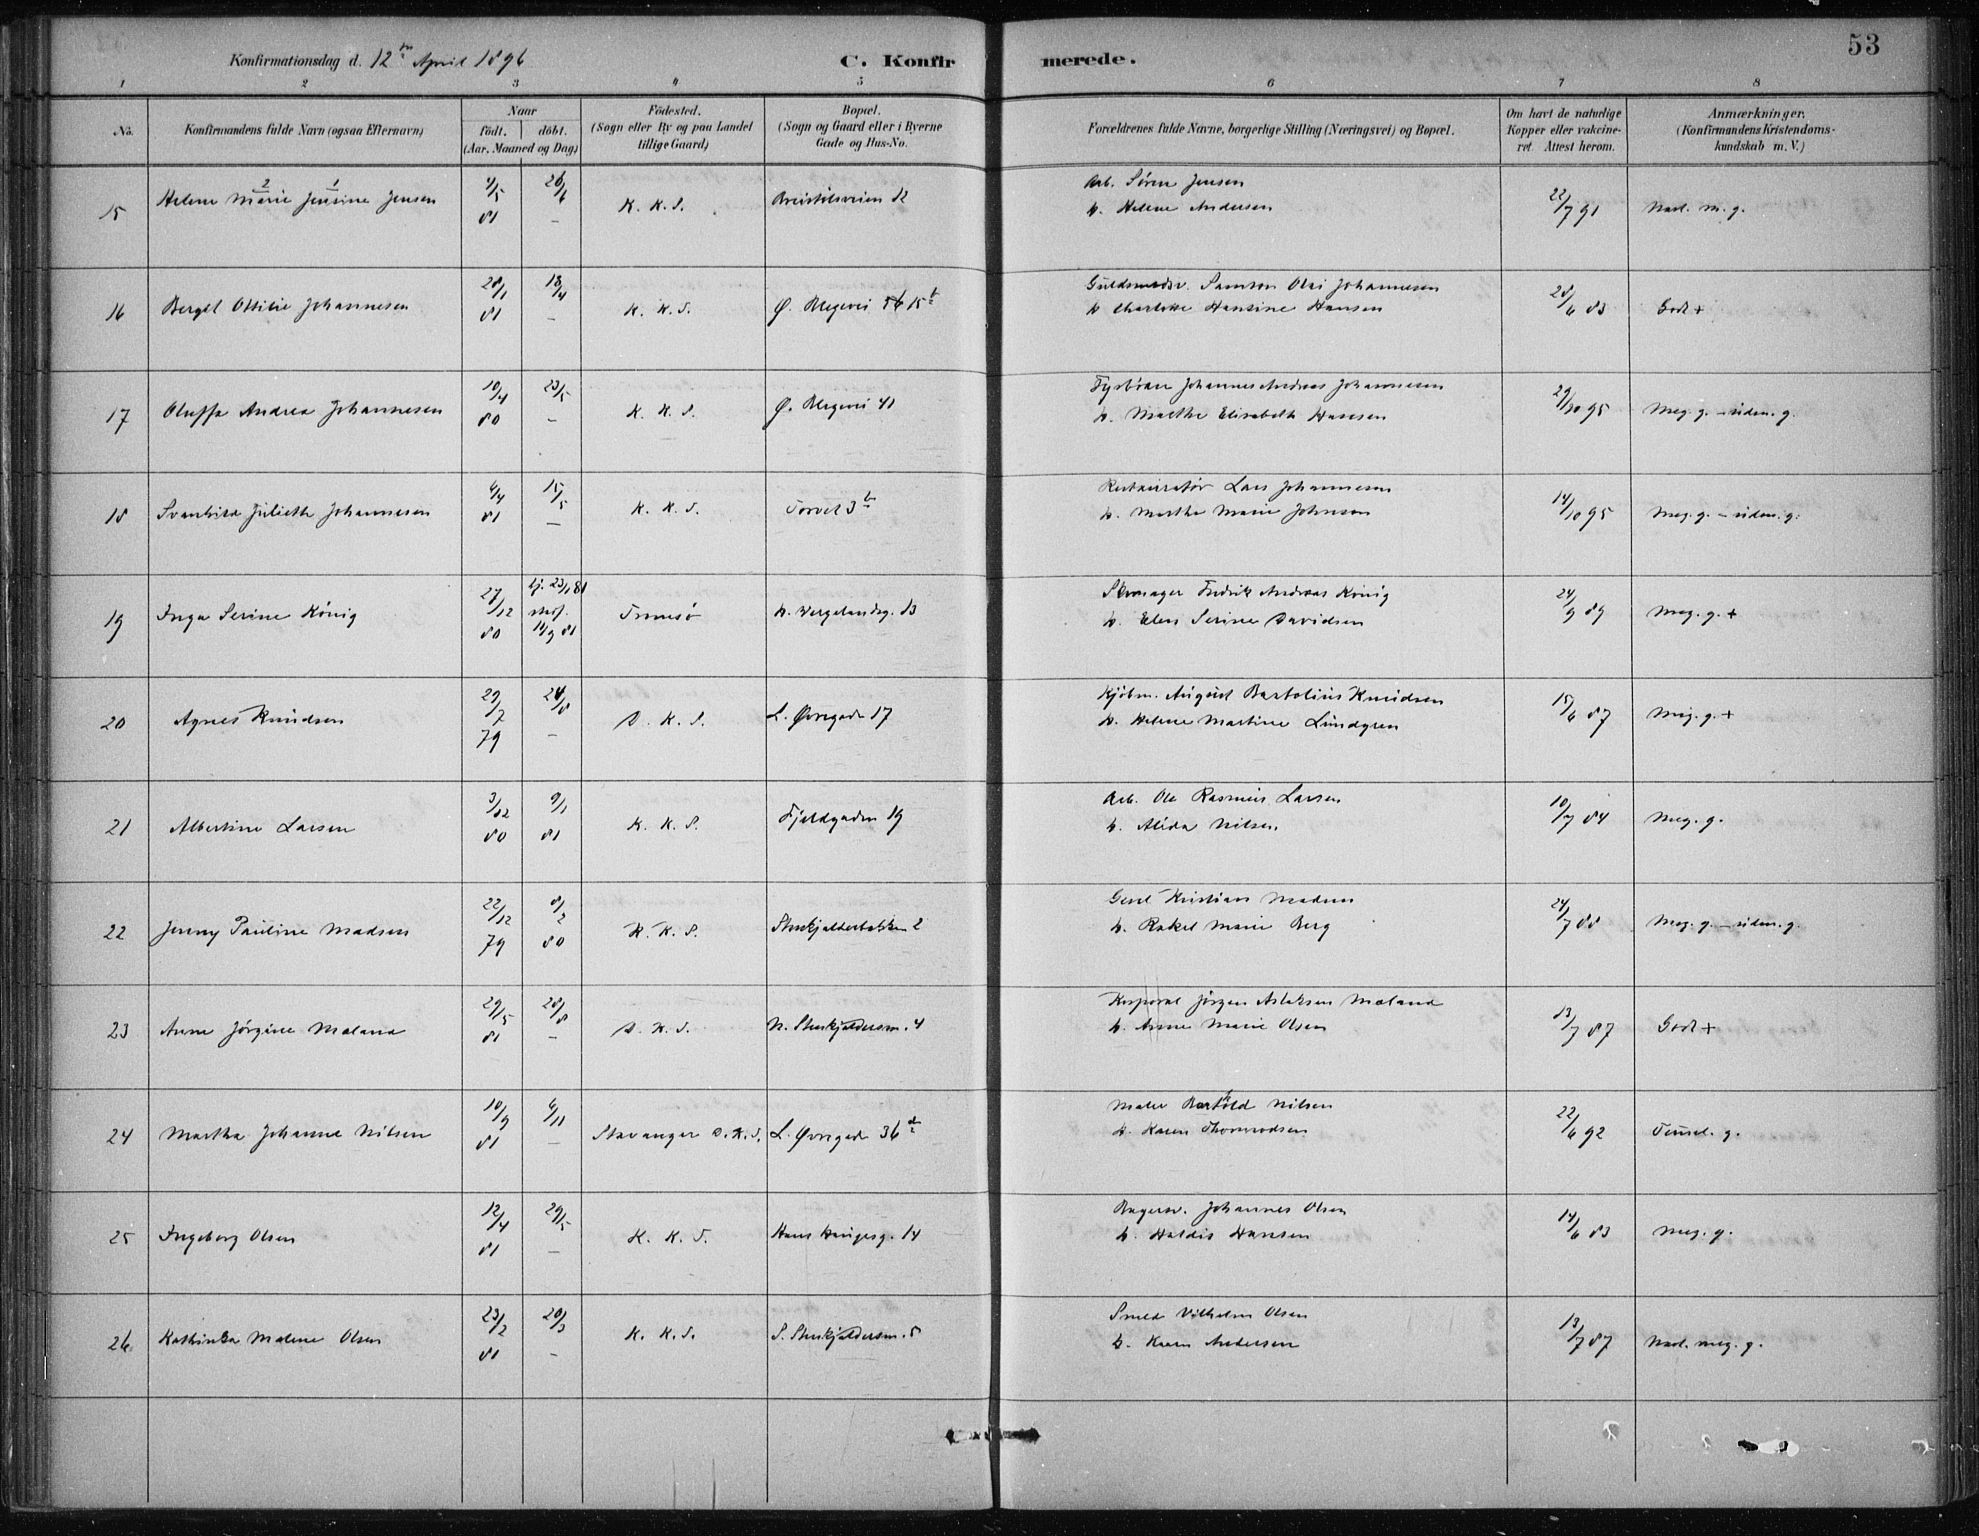 53
Konfirmationsdag d. 12te April 1896
C. Konfirmerede.
1 2 3 4 5 6 7 8
No. Konfirmandens fulde Navn (ogsaa Efternavn) Naar født. døbt. (Aar, Maaned og Dag) Fødested. (Sogn eller By og paa Landet tillige Gaard) Bopæl. (Sogn og Gaard eller i Byerne Gade og Hus-No. Forældrenes fulde Navne, borgerlige Stilling (Næringsvei) og Bopæl. Om havt de naturlige Kopper eller vakcineret. Attest herom. Anmærkninger, (Konfirmandens Kristendomskundskab m. V.)
15 Helene Marie Jensine Jensen 81 K. K. S. 12 Arb. Søren Jensen
h. Helene Andersen 22/7 91 Nasl. m. g.
16 Bergit Ottilie Johannesen 28/1 81 18/4 – K. K. S. Ø. Blegevei 15b Guldsmedsv. Samson Olai Johannesen
h. Charlotte Hansine Hansen 28/6 83 Godt +
17 Oluffa Andrea Johannesen 10/4 80 23/5 – K. K. S. Ø. Blegevei 41 Fyrbøder Johannes Andreas Johannesen
h. Marthe Elisabeth Hansen 29/10 95 Meg. g. – uden. g.
18 Svanhild Juliette Johannesen 4/4 81 15/5 – K. K. S. Torvet 3b Restauratør Lars Johannesen
h. Marthe Marie Johnson 14/10 95 Meg. g. – uden. g.
19 Inga Serine König 27/12 80 hj. 23/1 81 11/9 81 Tromsø H. Wergelandsg. 13 Skomager Fredrik Andreas König
h. Elen Serine Davidsen 24/9 89 Meg. g. +
20 Agnes Knudsen 29/7 79 24/8 – D. K. S. L. Øvregade 17 Kjøbm. August Bartolius Knudsen
h. Helene Martine Lundgren 15/6 87 Meg. g. +
21 Albertine Larsen 3/12 80 9/1 81 K. K. S. Fjeldgaden 19 Arb. Ole Rasmus Larsen
h. Alida Nilsen 10/7 84 Meg. g.
22 Jenny Pauline Madsen 22/12 79 8/2 80 K. K. S. Stenkjelderbakken 2 Kristian Madsen
h. Rakel Marie Berg 24/7 88 Meg. g. – uden. g.
23 Anne Jørgine Maland 29/5 81 28/8 – D. K. S. N. Stenkjeldersm. 4 Korporal Jørgen Aslaksen Maland
h. Anne Marie Olsen 13/7 87 Godt +
24 Martha Johanne Nilsen 10/9 81 6/11 – Stavanger D. K. S. L. Øvregade 36d Maler Bertold Nilsen
h. Karen 22/6 92 g.
25 Ingeborg Olsen 12/4 81 29/5 – K. K. S. Hans Haugesg. 14 Bagersv. Johannes Olsen
h. Haldis Hansen 14/6 83 Meg. g.
26 Kathinka Malene Olsen 23/2 81 20/3 – K. K. S. S. Stenkjeldersm. 5 Smed Vilhelm Olsen
h. Karen Andersen 13/7 87 Nasl. meg. g.